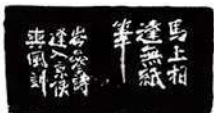 馬上相
逢無紙
筆
岑參詩
逢入京使
風刻